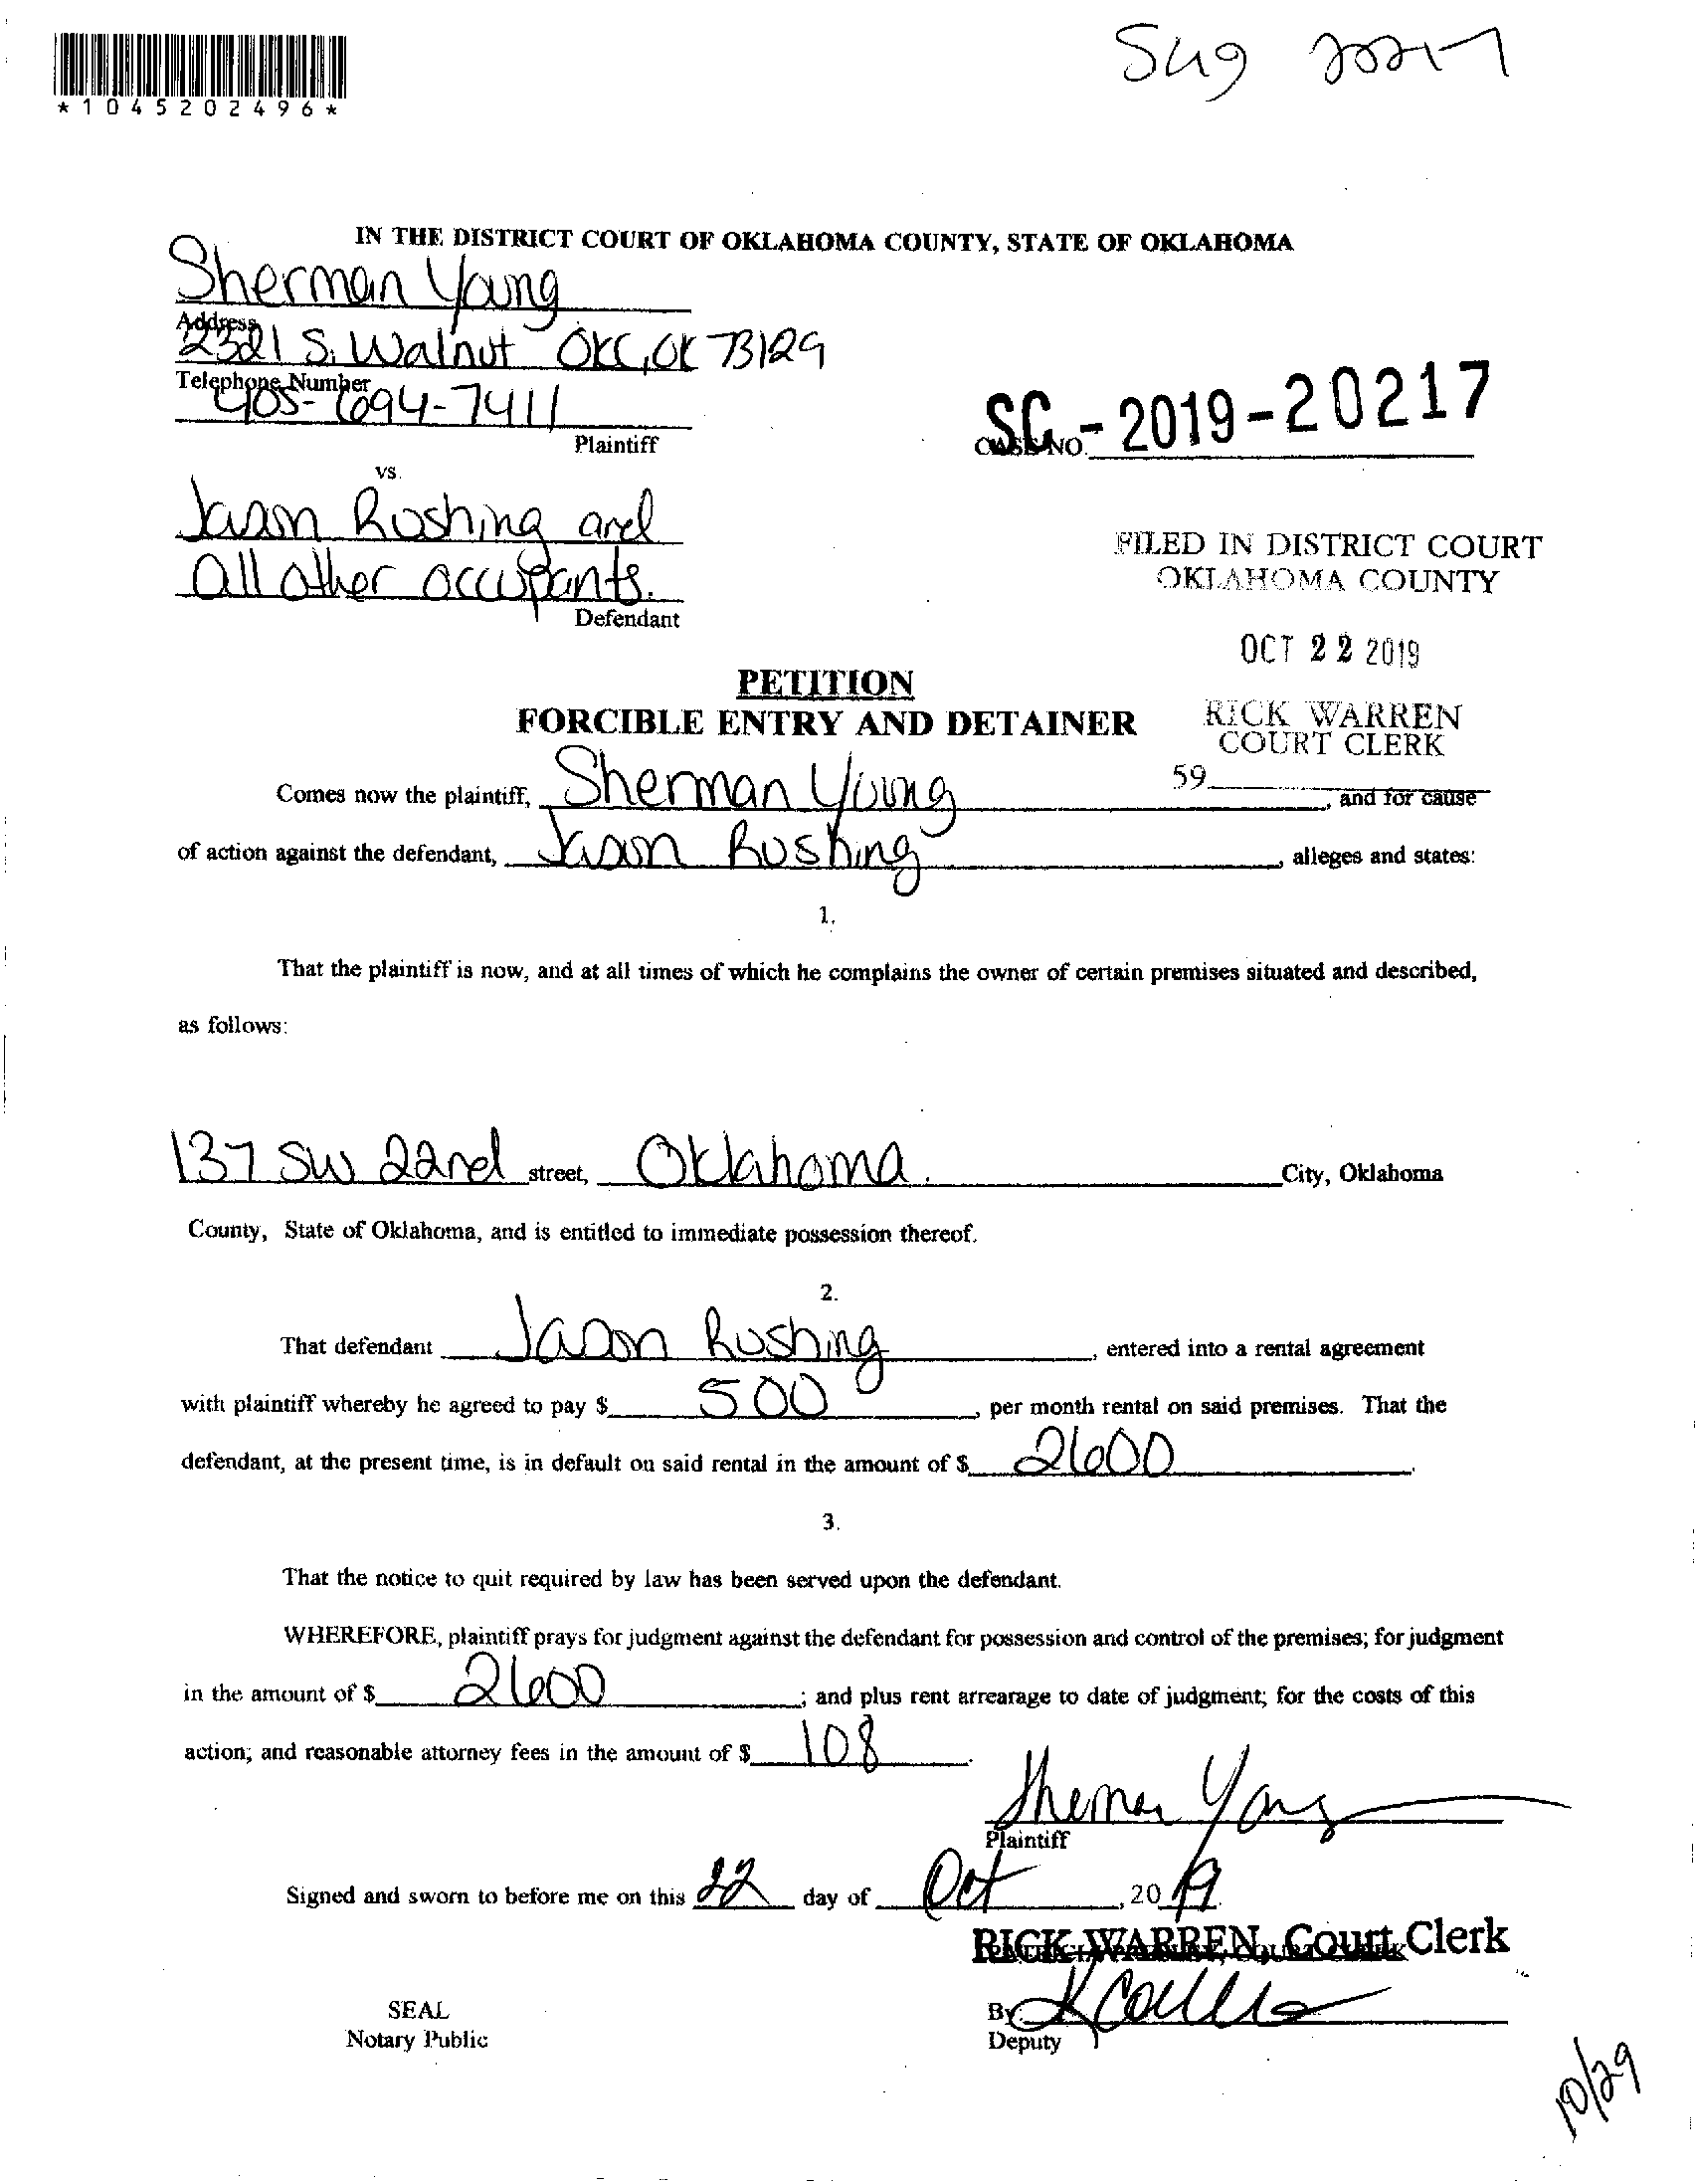 *1045202496*
IN THE DISTRICT COURT OF OKLAHOMA COUNTY, STATE OF OKLAHOMA
Sherman Young
Address
2321 S. Walnut OKC, OK 73129
Telephone Number
405-694-7411
Plaintiff
vs.
Jason Rushing and
all other occupants.
Defendant
SC-2019-20217
CASE NO.
FILED IN DISTRICT COURT
OKLAHOMA COUNTY
OCT 22 2019
RICK WARREN
COURT CLERK
59
PETITION
FORCIBLE ENTRY AND DETAINER
Comes now the plaintiff, Sherman Young, and for cause
of action against the defendant, Jason Rushing, alleges and states:
1.
That the plaintiff is now, and at all times of which he complains the owner of certain premises situated and described,
as follows:
137 SW 22nd street, Oklahoma City, Oklahoma
County, State of Oklahoma, and is entitled to immediate possession thereof.
2.
That defendant Jason Rushing, entered into a rental agreement
with plaintiff whereby he agreed to pay $ 500, per month rental on said premises. That the
defendant, at the present time, is in default on said rental in the amount of $ 2600.
3.
That the notice to quit required by law has been served upon the defendant.
WHEREFORE, plaintiff prays for judgment against the defendant for possession and control of the premises; for judgment
in the amount of $ 2600; and plus rent arrearage to date of judgment; for the costs of this
action; and reasonable attorney fees in the amount of $ 108.
Sherman Young
Plaintiff
Signed and sworn to before me on this 22 day of Oct, 2019.
RICK WARREN, Court Clerk
By:
Deputy
SEAL
Notary Public
10/29